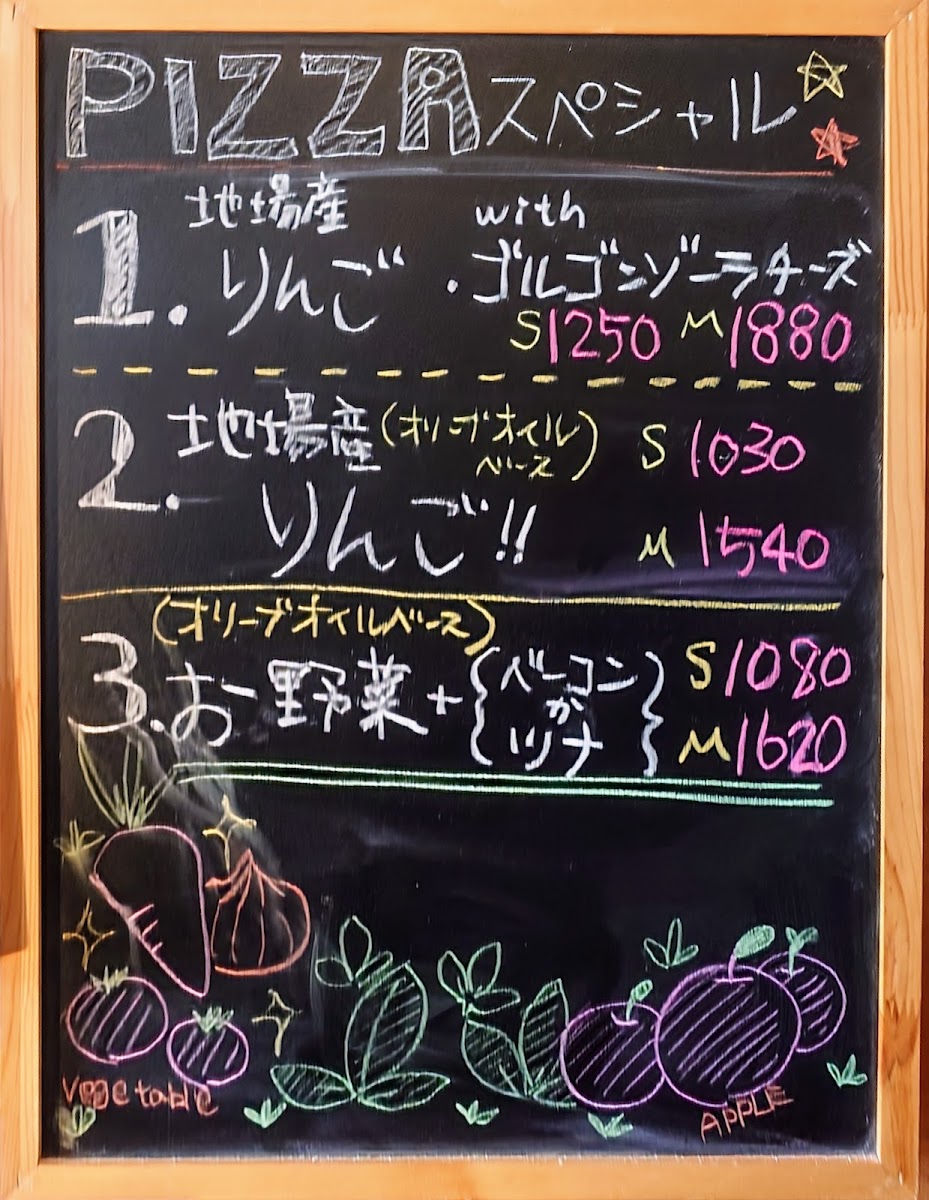 PIZZAスペシャル
1. 地場産 with
りんご ・ゴルゴンゾーラチーズ
S1250 M1880
2. 地場産(オリーブオイルベース) S 1030
りんご!! M 1540
(オリーブオイルベース)
3. お野菜+{ベーコンかツナ} S1080
M1620
Vegetable
APPLE